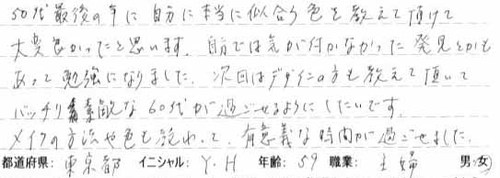 50代最後の年に自分に本当に似合う色を教えて頂けて
大変良かったと思います。自分では気が付かなかった発見とかも
あって勉強になりました。次回はデザインの方も教えて頂いて
バッチリ素敵な60代が過ごせるようにしたいです。
メイクの方法や色も教わって、有意義な時間が過ごせました。
都道府県: 東京都 イニシャル: Y.H 年齢: 59 職業: 主婦 男・女